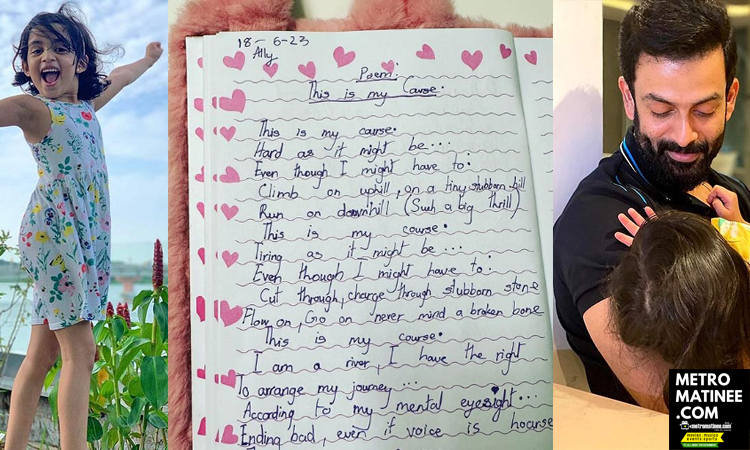 18-6-23
Ally
Poem:
This is my Course.
This is my course.
Hard as it might be...
Even though I might have to:
Climb on uphill, on a tiny stubborn hill
Run on downhill (Such a big thrill)
This is my course.
Tiring as it might be...
Even though I might have to:
Cut through, charge through stubborn stone
Flow on, Go on never mind a broken bone
This is my course.
I am a river, I have the right
To arrange my journey...
According to my mental eyesight...
Ending bad, even if voice is hourse
METRO
MATINEE
.COM
metromatinee.com
movies musics
events sports